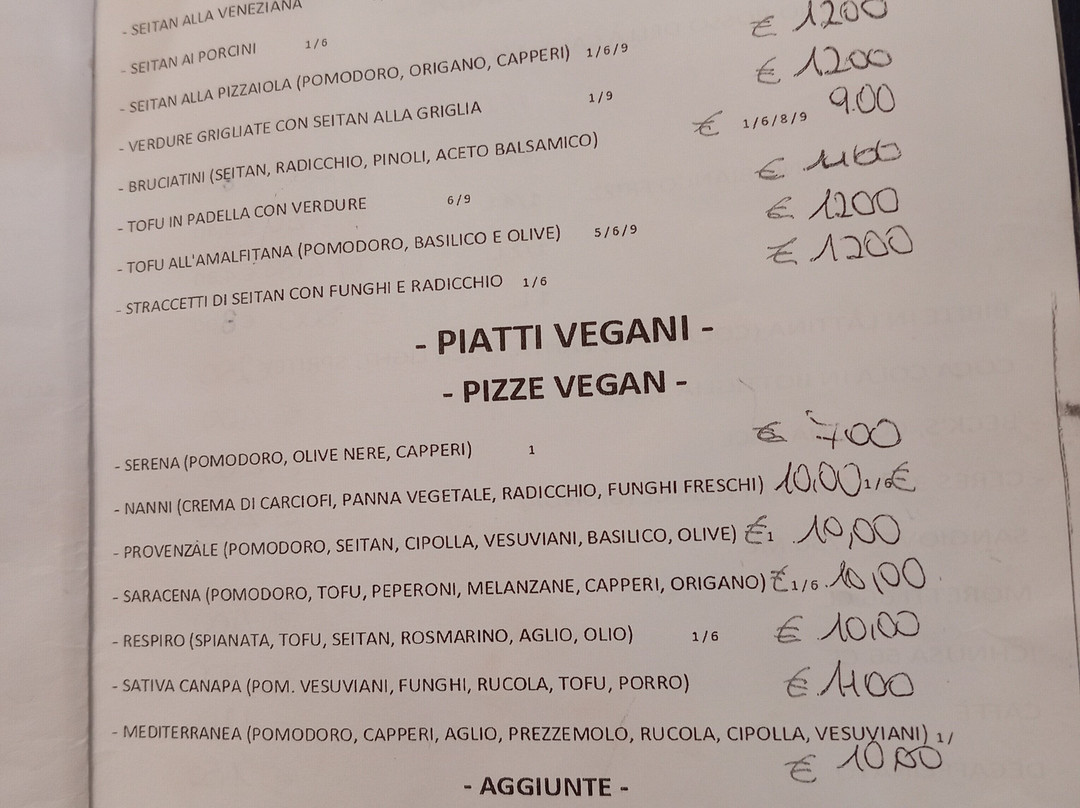 - SEITAN ALLA VENEZIANA
- SEITAN AI PORCINI 1/6 € 1200
- SEITAN ALLA PIZZAIOLA (POMODORO, ORIGANO, CAPPERI) 1/6/9 € 1200
- VERDURE GRIGLIATE CON SEITAN ALLA GRIGLIA 1/9 9.00
- BRUCIATINI (SEITAN, RADICCHIO, PINOLI, ACETO BALSAMICO) € 1/6/8/9
- TOFU IN PADELLA CON VERDURE 6/9 €
- TOFU ALL'AMALFITANA (POMODORO, BASILICO E OLIVE) 5/6/9 € 1200
- STRACCETTI DI SEITAN CON FUNGHI E RADICCHIO 1/6 € 1200
- PIATTI VEGANI -
- PIZZE VEGAN -
- SERENA (POMODORO, OLIVE NERE, CAPPERI) 1 € 700
- NANNI (CREMA DI CARCIOFI, PANNA VEGETALE, RADICCHIO, FUNGHI FRESCHI) 10,00 1/6 €
- PROVENZALE (POMODORO, SEITAN, CIPOLLA, VESUVIANI, BASILICO, OLIVE) € 1 10,00
- SARACENA (POMODORO, TOFU, PEPERONI, MELANZANE, CAPPERI, ORIGANO) € 1/6 10,00
- RESPIRO (SPIANATA, TOFU, SEITAN, ROSMARINO, AGLIO, OLIO) 1/6 € 10,00
- SATIVA CANAPA (POM. VESUVIANI, FUNGHI, RUCOLA, TOFU, PORRO) € 1100
- MEDITERRANEA (POMODORO, CAPPERI, AGLIO, PREZZEMOLO, RUCOLA, CIPOLLA, VESUVIANI) 1/
€ 10,00
- AGGIUNTE -